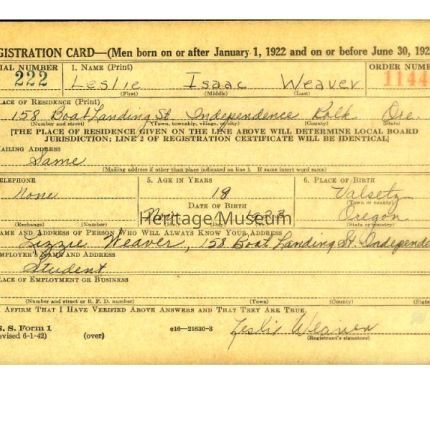 REGISTRATION CARD—(Men born on or after January 1, 1922 and on or before June 30, 192
SERIAL NUMBER 1. NAME (Print) ORDER NUMBER
222 Leslie Isaac Weaver 1144
(First) (Middle) (Last)
PLACE OF RESIDENCE (Print)
158 Boat Landing St. Independence Polk Ore.
(Number and street) (Town, township, village, or city) (County) (State)
[THE PLACE OF RESIDENCE GIVEN ON THE LINE ABOVE WILL DETERMINE LOCAL BOARD
JURISDICTION; LINE 2 OF REGISTRATION CERTIFICATE WILL BE IDENTICAL]
MAILING ADDRESS
Same
[Mailing address if other than place indicated on line 2. If same insert word same]
TELEPHONE 5. AGE IN YEARS 6. PLACE OF BIRTH
None 18 Valsetz
DATE OF BIRTH (Town or county)
Oregon
Heritage Museum
(Exchange) (Number) (State or country)
NAME AND ADDRESS OF PERSON WHO WILL ALWAYS KNOW YOUR ADDRESS
Lizzie Weaver, 158 Boat Landing St. Independe
EMPLOYER'S NAME AND ADDRESS
Student
PLACE OF EMPLOYMENT OR BUSINESS
(Number and street or R. F. D. number) (Town) (County) (State)
I AFFIRM THAT I HAVE VERIFIED ABOVE ANSWERS AND THAT THEY ARE TRUE.
S. S. Form 1
(Revised 6-1-42) (over) Leslie Weaver
(Registrant's signature)